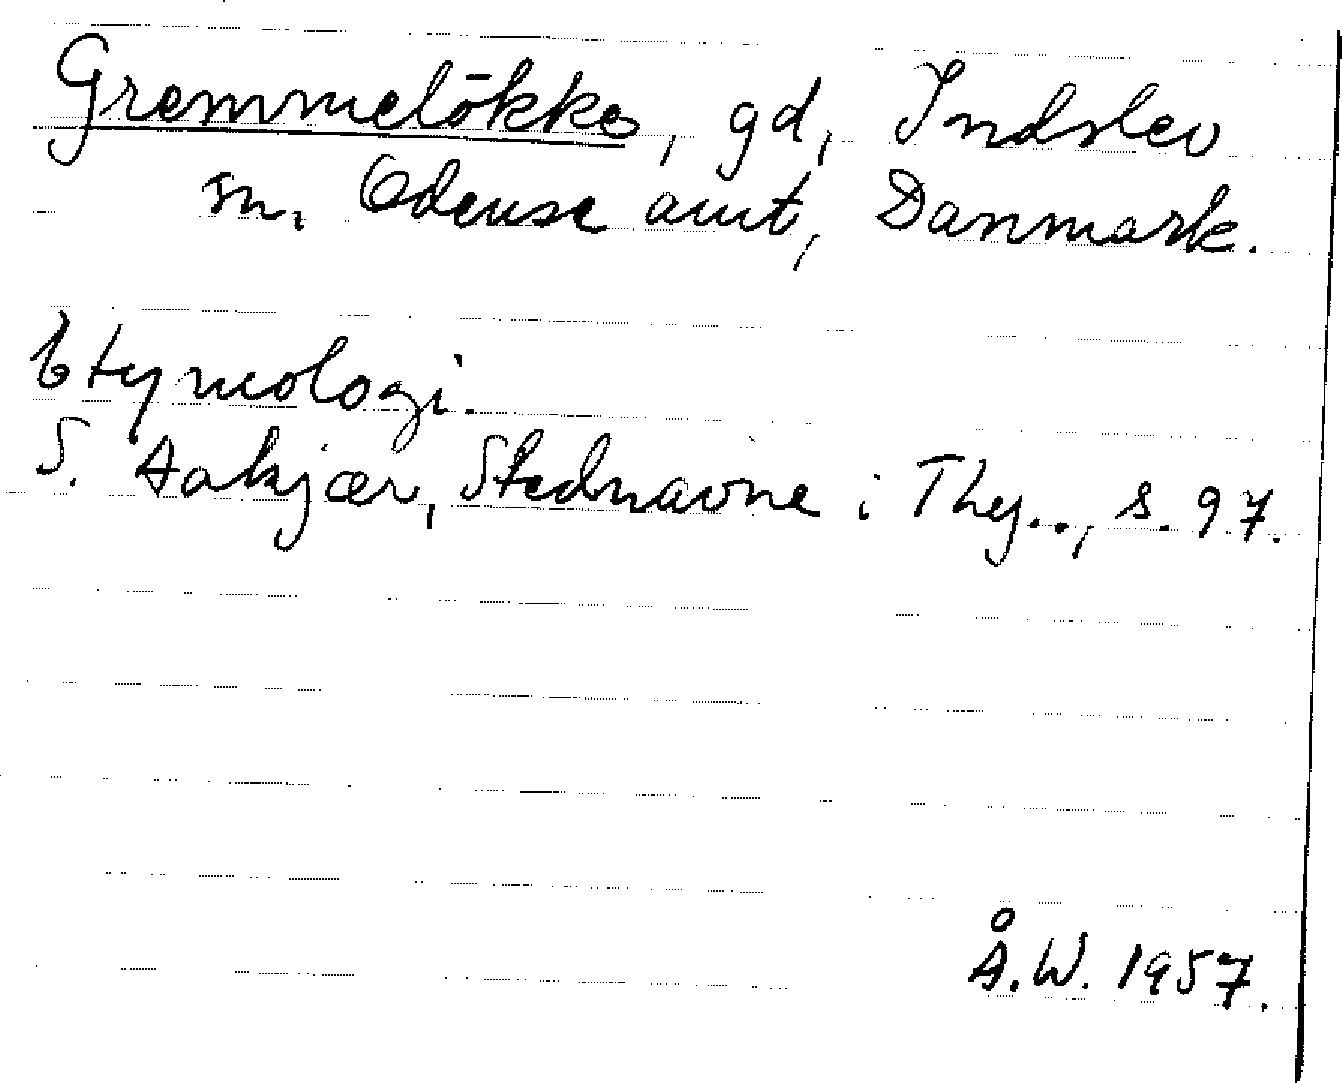 Gremmelökke, gd, Indslev
sn. Odense amt, Danmark.
Etymologi.
S. Aakjær, Stednavne i Thy.., s. 97.
Å.W. 1957.